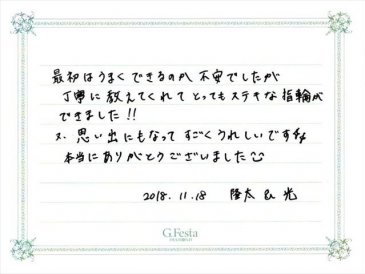 最初はうまくできるのか不安でしたが
丁寧に教えてくれてとってもステキな指輪が
できました!!
又、思い出にもなってすごくうれしいです
本当にありがとうございました
2018.11.18 隆太 & 光
G.Festa